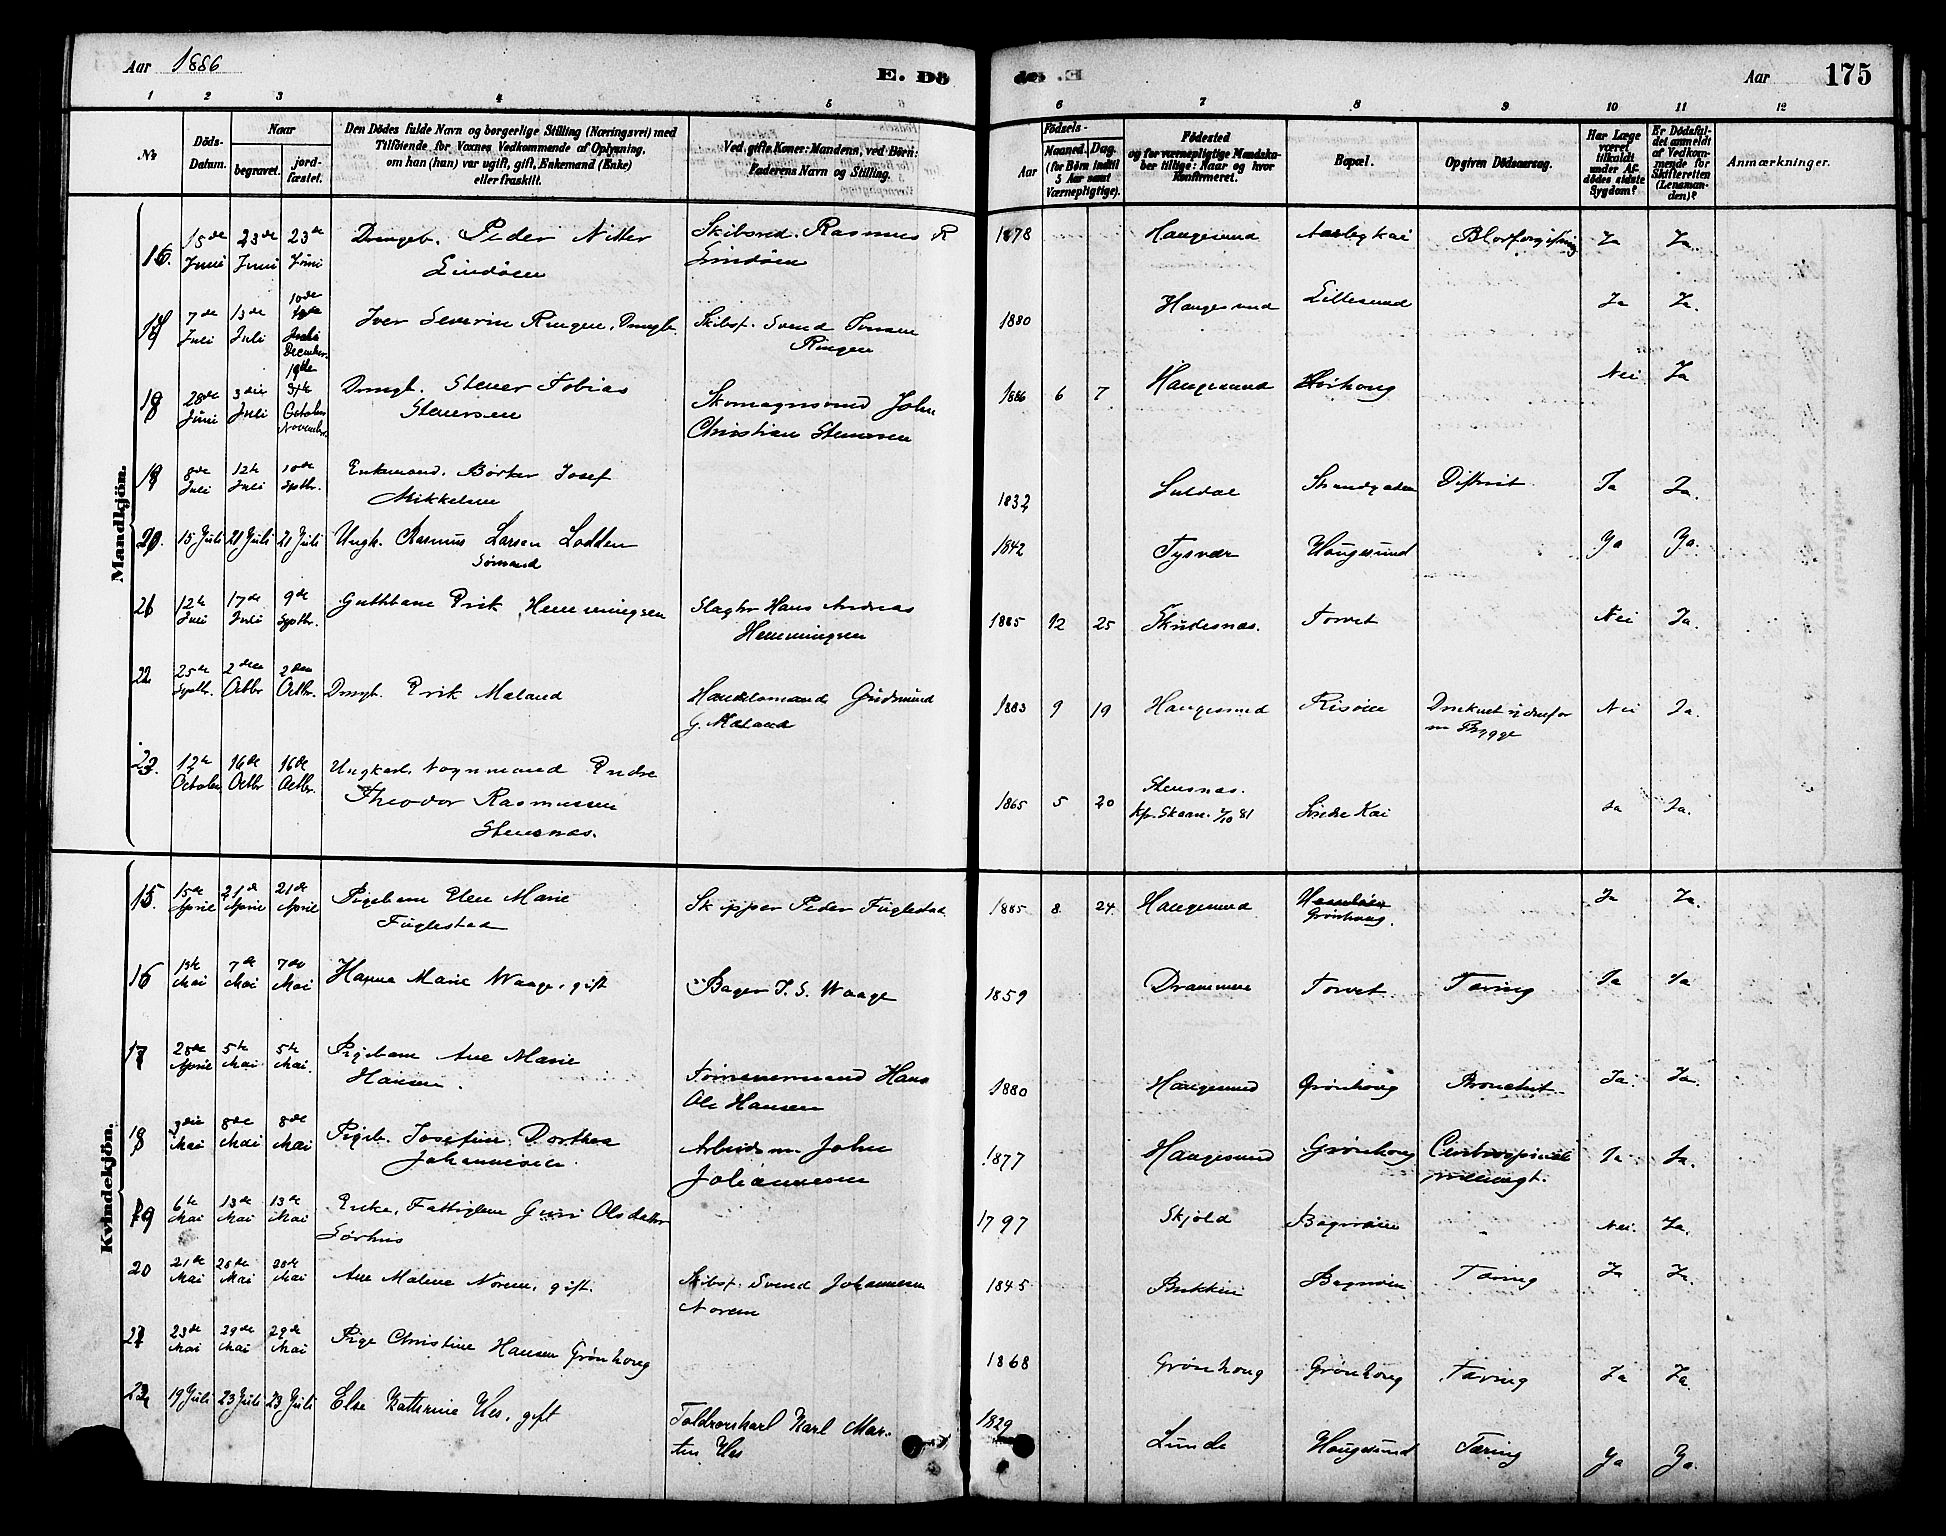 Aar 1886
E. Dö
de. E
Aar
175
1 2 3 4 5 6
6 7 8 9 10 11 12
No
Döds-Datum.
Naar
begravet.
jordfæstet.
Den Dödes fulde Navn og borgerlige Stilling (Næringsvei) med
Tilföiende, for Voxnes Vedkommende af Oplysning,
om han (hun) var ugift, gift, Enkemand (Enke)
eller fraskilt.
Ved gifte Koner: Mandens, ved Börn:
Faderens Navn og Stilling.
Födsels-
Aar
Maaned. Dag.
(for Börn indtil
5 Aar samt
Værnepligtige).
Födested
og for værnepligtige Mandska-
ber tillige: Naar og hvor
Konfirmeret.
Bopæl.
Opgiven Dödsaarsag.
Har Læge
været
tilkaldt
under Af-
dödes sidste
Sygdom?
Er Dödsfal-
det anmeldt
af Vedkom-
mende for
Skifteretten
(Lensman-
den)?
Anmærkninger.
Mandkjön.
16. 15de Juni 23de Juni 23de Juni Drengeb. Peder Nitter Lindöen Skibsred. Rasmus R Lindöen 1878 Haugesund Aasbygkai Blodforgiftning Ja Ja.
17 7de Juli 13de Juli 10de December Iver Severin Ringen, Drngb. Skibsf. Svend Ivarsen Ringen 1880 Haugesund Lillesund Ja Ja.
18 28de Juni 3die Juli 19de November Drngb. Stener Tobias Stenersen Skomagersvend John Christian Stenersen 1886 6 7 Haugesund Hvithoug Nei Ja
19 8de Juli 12te Juli 10de Septbr. Enkemand. Börker Josef Mikkelsen 1832 Suldal Strandgaden Difterit Ja Ja.
20. 15 Juli 21 Juli 21 Juli Ungk. Rasmus Larsen Lodden Sömand 1842 Tysvær Haugesund Ja Ja.
21 12te Juli 17de Juli 9de Septbr. Guttbarn Erik Hemmingsen Slagter Hans Andreas Hemmingsen 1885 12 25 Skudesnæs. Torvet Nei Ja.
22 25de Septbr. 2den Octbr 2den Octbr. Drngb. Erik Maland Handelsmand Gudmund G. Maland 1883 9 19 Haugesund Risöen Druknet udenfor en Brygge Nei Ja.
23. 12te October 16de Octbr 16de Octbr. Ungkarl, Vognmand Endre Theodor Rasmussen Stensnæs. 1865 5 20 Stensnæs. Kfr. Skaare 2/10 81 Söndre Kai Ja Ja.
Kvindekjön.
15. 15de April 21de April 21de April Pigebarn Elen Marie Fuglestad Skipper Peder Fuglestad 1885 8 24 Haugesund Grönhoug. Ja Ja.
16 1ste Mai 7de Mai 7de Mai Hanna Marie Waage, gift Bager J. S. Waage 1859 Drammen Torvet Tæring Ja Ja
17 28de April 5te Mai 5te Mai. Pigebarn Ane Marie Hansen. Tömmermand Hans Ole Hansen 1880 Haugesund Grönhoug Bronchit Ja. Ja.
18 3die Mai 8de Mai 8de Mai Pigeb. Josefine Dorthea Johannesen. Arbeidsm. John Johannesen 1877 Haugesund Grönhoug Cerebrospinal meningt. Ja Ja.
19 6te Mai 13de Mai 13de Mai Enke, Fattiglem Guri Olsdatter Sörhus 1797 Skjold Bagveien " Nei. Ja.
20 21de Mai 26de Mai 26de Mai Ane Malene Norem, gift. Skibsf. Svend Johannesen Norem 1845 Bukken Bagveien Tæring Ja Ja.
21 23de Mai 29de Mai 29de Mai Pige Christine Hansen Grönhoug 1868 Grönhoug Grönhoug Tæring Ja Ja.
22 19 Juli 23 Juli 23 Juli Else Kathrine Ves, gift Toldroerskarl Karl Mar- ten Ves 1829 Lunde Haugesund Tæring Ja Ja.